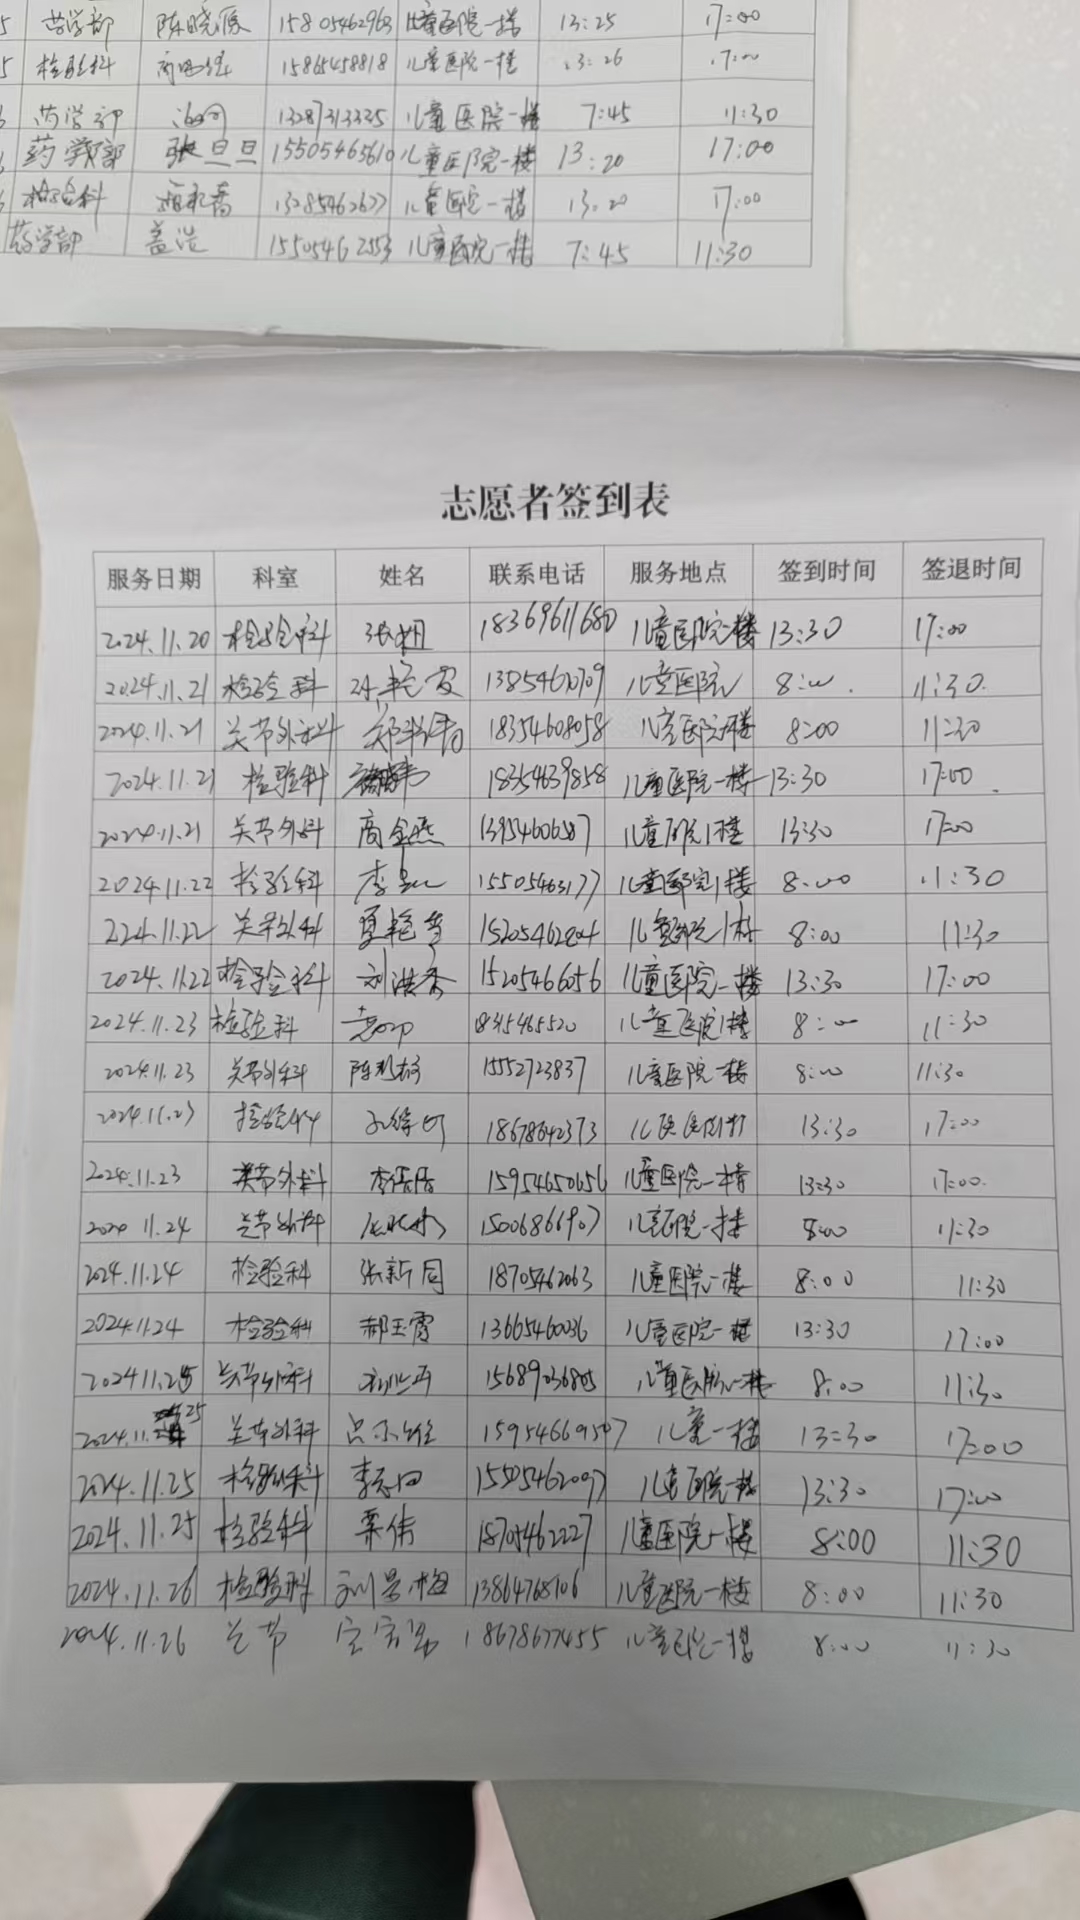 药学部 陈晓原 15805462963 儿童医院一楼 13:25 17:00
检验科 15865458818 儿童医院一楼 13:26 17:00
药学部 13287313335 儿童医院一楼 7:45 11:30
药学部 张旦旦 15505465610 儿童医院一楼 13:20 17:00
检验科 儿童医院一楼 13:20 17:00
药学部 盖浩 15505462553 儿童医院一楼 7:45 11:30
志愿者签到表
服务日期 科室 姓名 联系电话 服务地点 签到时间 签退时间
2024.11.20 检验科 张姐 18369611680 儿童医院一楼 13:30 17:00
2024.11.21 检验科 儿童医院 8:00 11:30
2024.11.21 关节外科 18354608058 儿童医院一楼 8:00 11:30
2024.11.21 检验科 18354639858 儿童医院一楼 13:30 17:00
2024.11.21 关节外科 商金燕 13954606587 儿童医院1楼 13:30 17:00
2024.11.22 检验科 15505463177 儿童医院1楼 8:00 11:30
224.11.22 关节外科 夏艳雪 15205462804 儿童医院1楼 8:00 11:30
2024.11.22 检验科 刘洪香 15205466056 儿童医院一楼 13:30 17:00
2024.11.23 检验科 儿童医院1楼 8:00 11:30
2024.11.23 关节外科 15552723837 儿童医院一楼 8:00 11:30
2024.11.23 检验科 18678642373 13:30 17:00
2024.11.23 关节外科 15954650656 儿童医院一楼 13:30 17:00
2024.11.24 关节外科 15006866907 儿童医院一楼 8:00 11:30
2024.11.24 检验科 张新同 18705462063 儿童医院一楼 8:00 11:30
2024.11.24 检验科 郝玉霄 13665460036 儿童医院一楼 13:30 17:00
2024.11.25 关节外科 儿童医院一楼 8:00 11:30
2024.11.25 关节外科 15954669507 儿童一楼 13:30 17:00
2024.11.25 检验科 15505462097 儿童医院一楼 13:30 17:00
2024.11.25 检验科 栗伟 18705462227 儿童医院一楼 8:00 11:30
2024.11.26 检验科 刘景梅 13864768106 儿童医院一楼 8:00 11:30
2024.11.26 关节 18678677455 儿童医院一楼 8:00 11:30